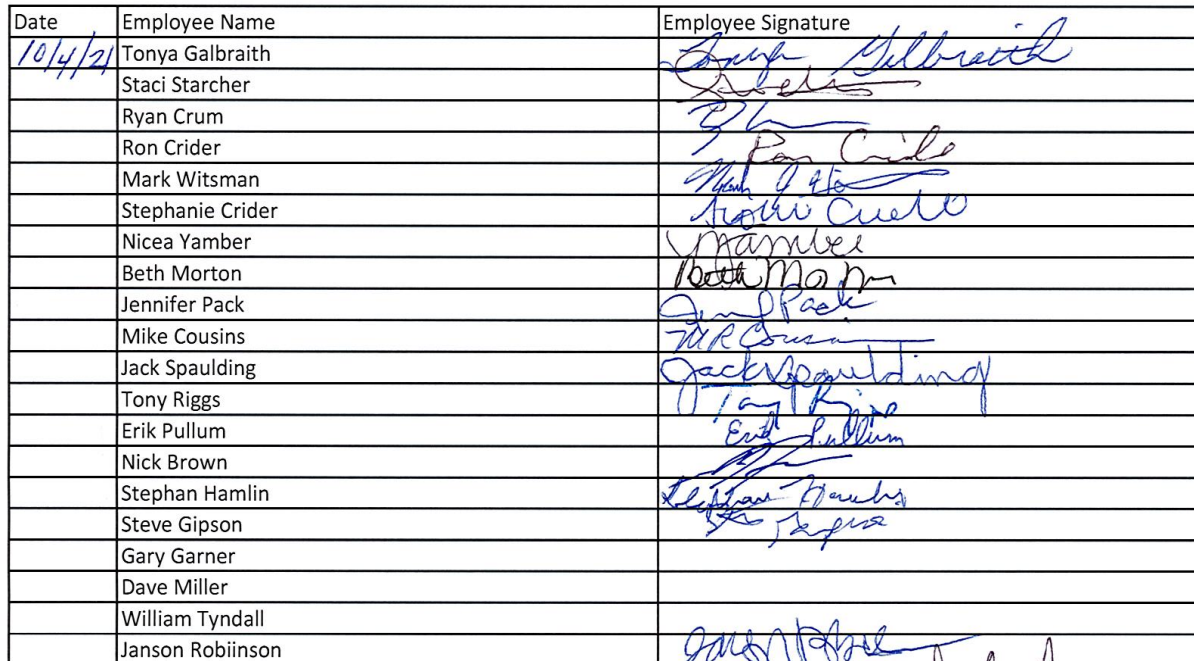 Date Employee Name Employee Signature
10/4/21 Tonya Galbraith Tonya Galbraith
Staci Starcher
Ryan Crum
Ron Crider Ron Cride
Mark Witsman Mark
Stephanie Crider
Nicea Yamber Yamber
Beth Morton Beth Morton
Jennifer Pack Jenn Pack
Mike Cousins MR Cousin
Jack Spaulding Jack Spaulding
Tony Riggs Tony Riggs
Erik Pullum Erik Pullum
Nick Brown
Stephan Hamlin Stephan Hamlin
Steve Gipson
Gary Garner
Dave Miller
William Tyndall
Janson Robiinson